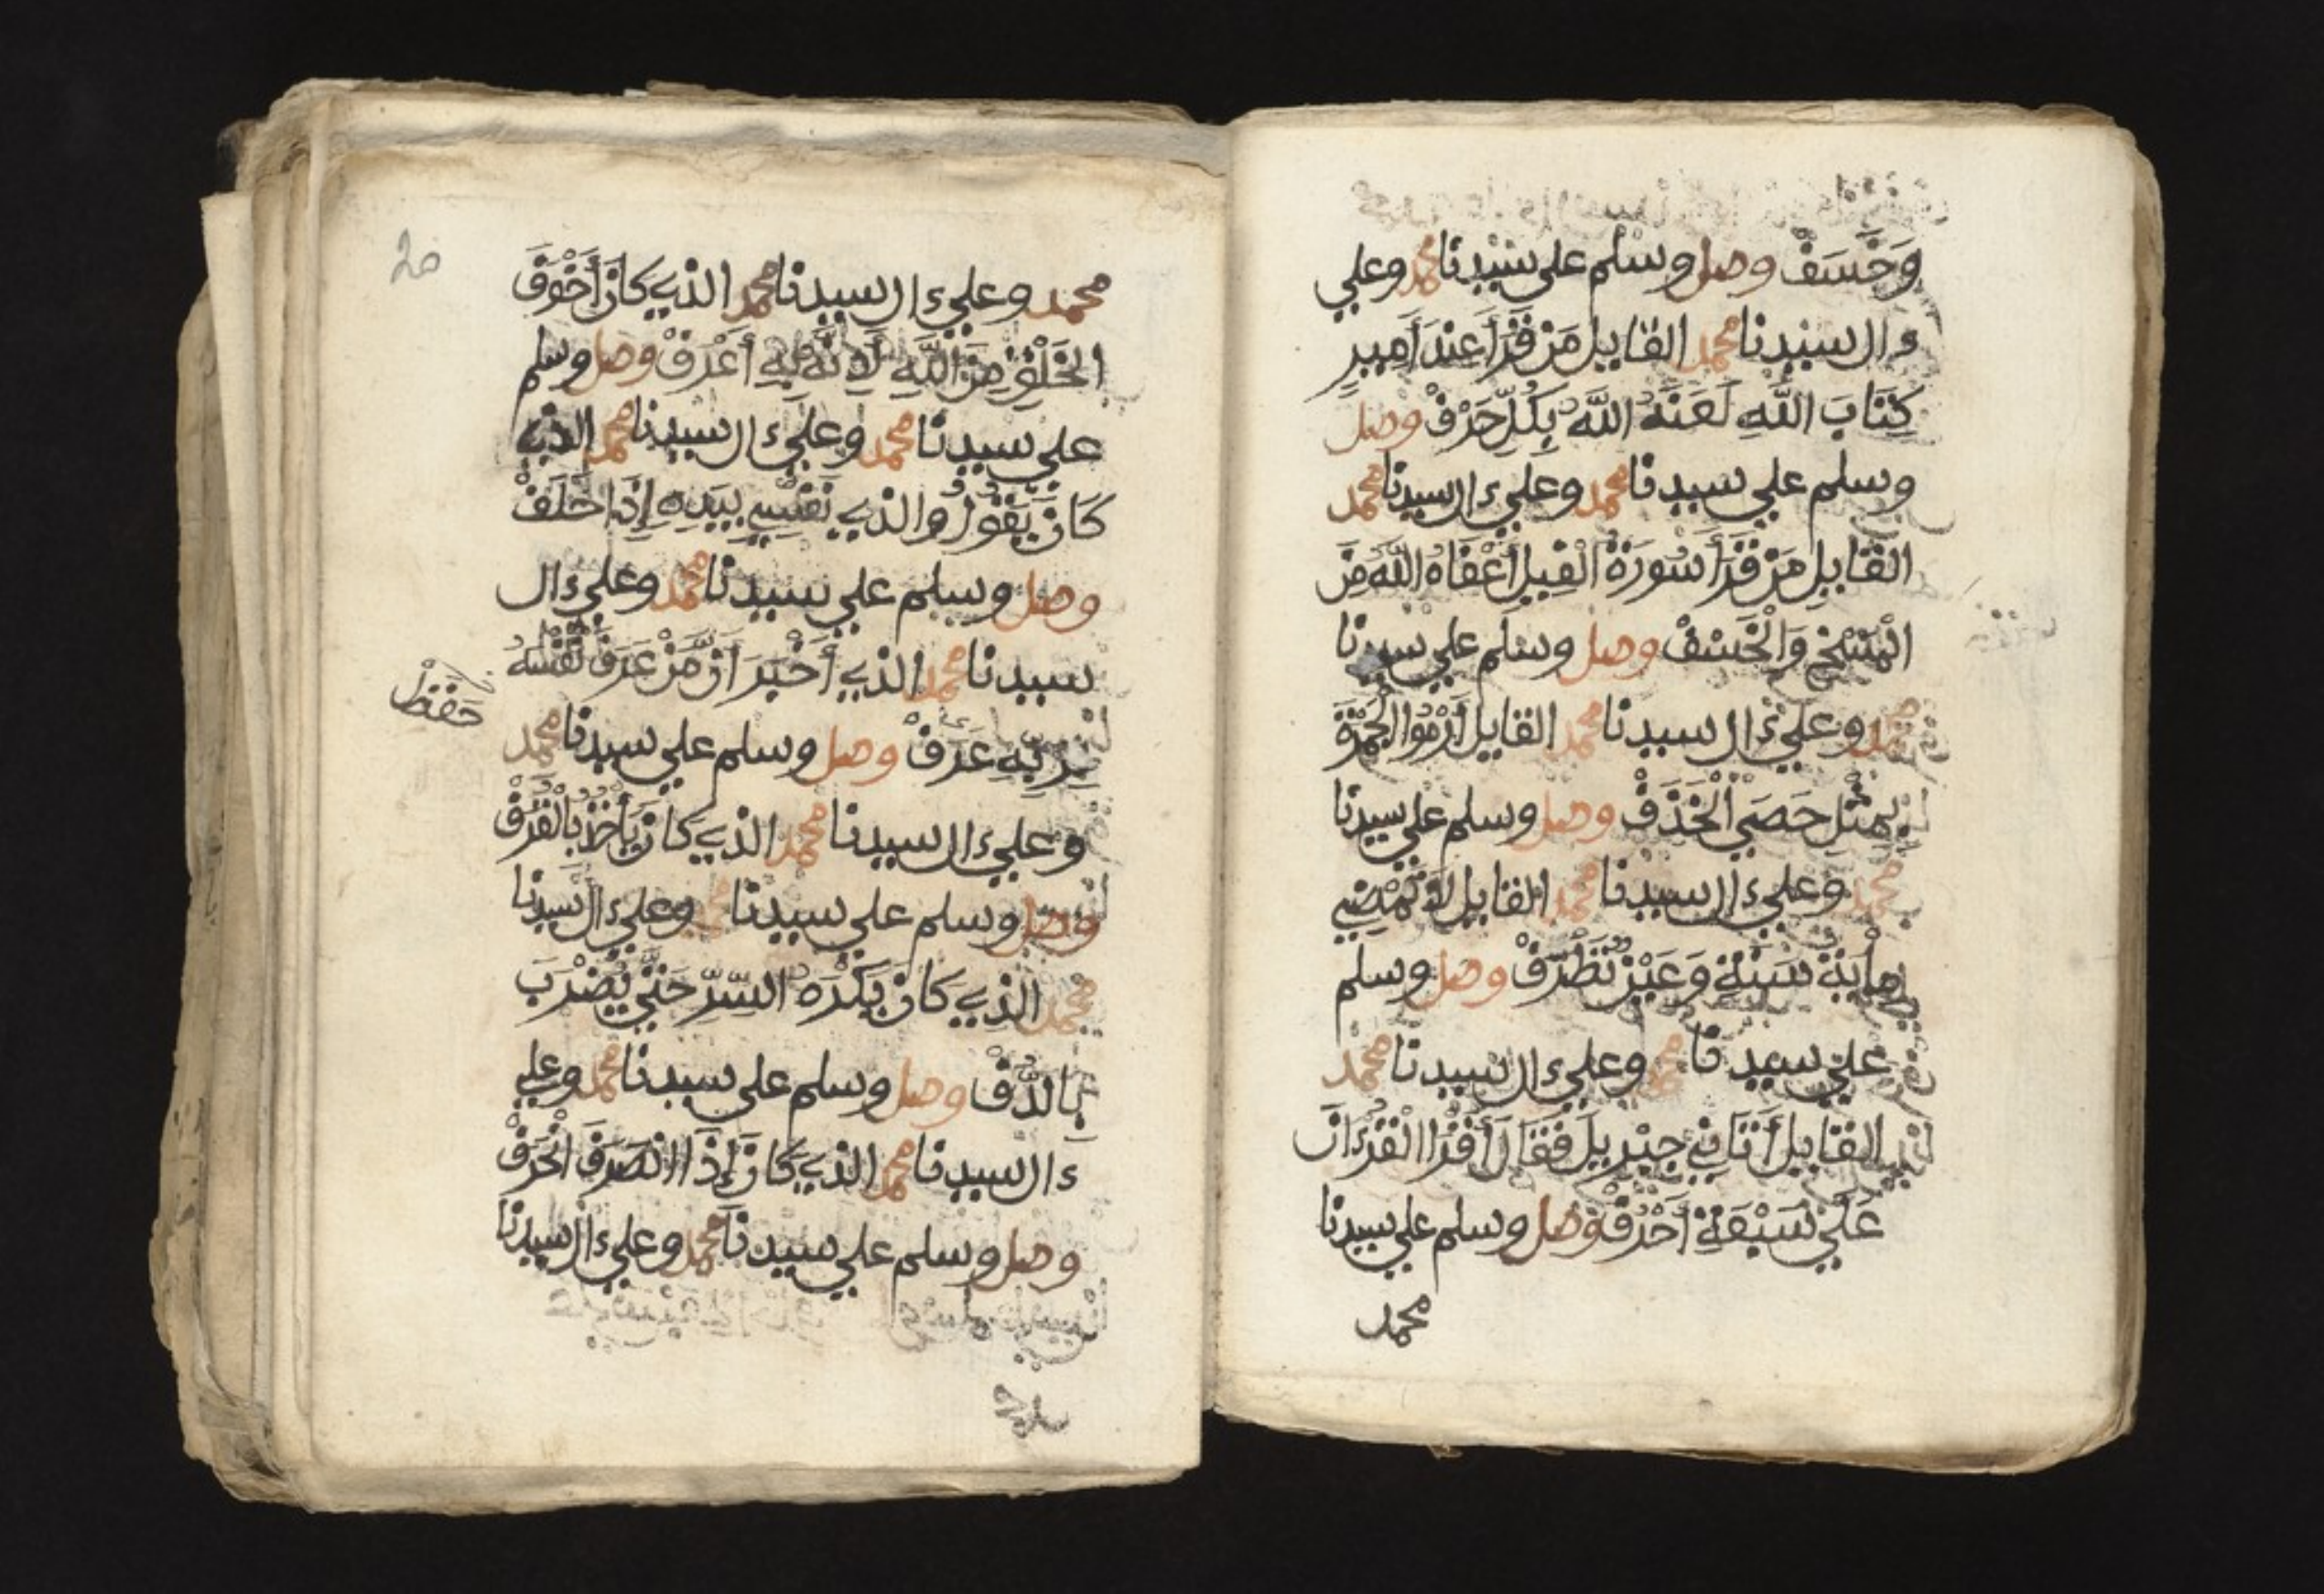 وَخَسَفْ وصل وسلم على سيدنا محمد وعلى
ءال سيدنا محمد القايل مَن قَرَأَ عِندَ أَمِيرٍ
كِتَابَ اللَّهِ لَعَنَهُ اللَّهُ بِكُلِّ حَرْفْ وصل
وسلم على سيدنا محمد وعلى ءال سيدنا محمد
القايل مَن قَرَأَ سُورَةَ الْفِيلِ أَعْفَاهُ اللَّهُ مِنَ
الْمَسْخِ وَالْخَسْفْ وصل وسلم على سيدنا
محمد وعلى ءال سيدنا محمد القايل أَرْمُوا الْجَمْرَةَ
بِمِثْلِ حَصَى الْخَذَفْ وصل وسلم على سيدنا
محمد وعلى ءال سيدنا محمد القايل لَا تَمْضِي
مِأْيَة سَنَةٍ وَعَيْنٌ تَطْرَفْ وصل وسلم
على سيدنا محمد وعلى ءال سيدنا محمد
القايل أَتَانِي جِبْرِيلَ فَقَالَ أَقْرَا الْقُرْءَانَ
عَلَى سَبْعَةِ أَحْرُفْ وصل وسلم على سيدنا
محمد
20
محمد وعلى ءال سيدنا محمد الذي كَانَ أَخْوَفَ
الْخَلْقِ مِنَ اللَّهِ لِأَنَّهُ بِهِ أَعْرَفْ وصل وسلم
على سيدنا محمد وعلى ءال سيدنا محمد الذي
كَانَ يَقُولُ وَالذي نَفْسِي بِيَدِهِ إِذَا حَلَفْ
وصل وسلم على سيدنا محمد وعلى ءال
سيدنا محمد الذي أَخْبَرَ أَنَّ مَنْ عَرَفَ نَفْسَهُ
بِرَبِّهِ عَرَفْ وصل وسلم على سيدنا محمد
وعلى ءال سيدنا محمد الذي كَانَ يَأْخُذُ بِالْقَرَفْ
وصل وسلم على سيدنا محمد وعلى ءال سيدنا
محمد الذي كَانَ يَكْرَهُ السِّرَّ حَتَّى يُضْرَبَ
بِالدُّفْ وصل وسلم على سيدنا محمد وعلى
ءَال سيدنا محمد الذي كَانَ إِذَا انْصَرَفَ انْحَرَفْ
وصل وسلم على سيدنا محمد وعلى ءال سيدنا